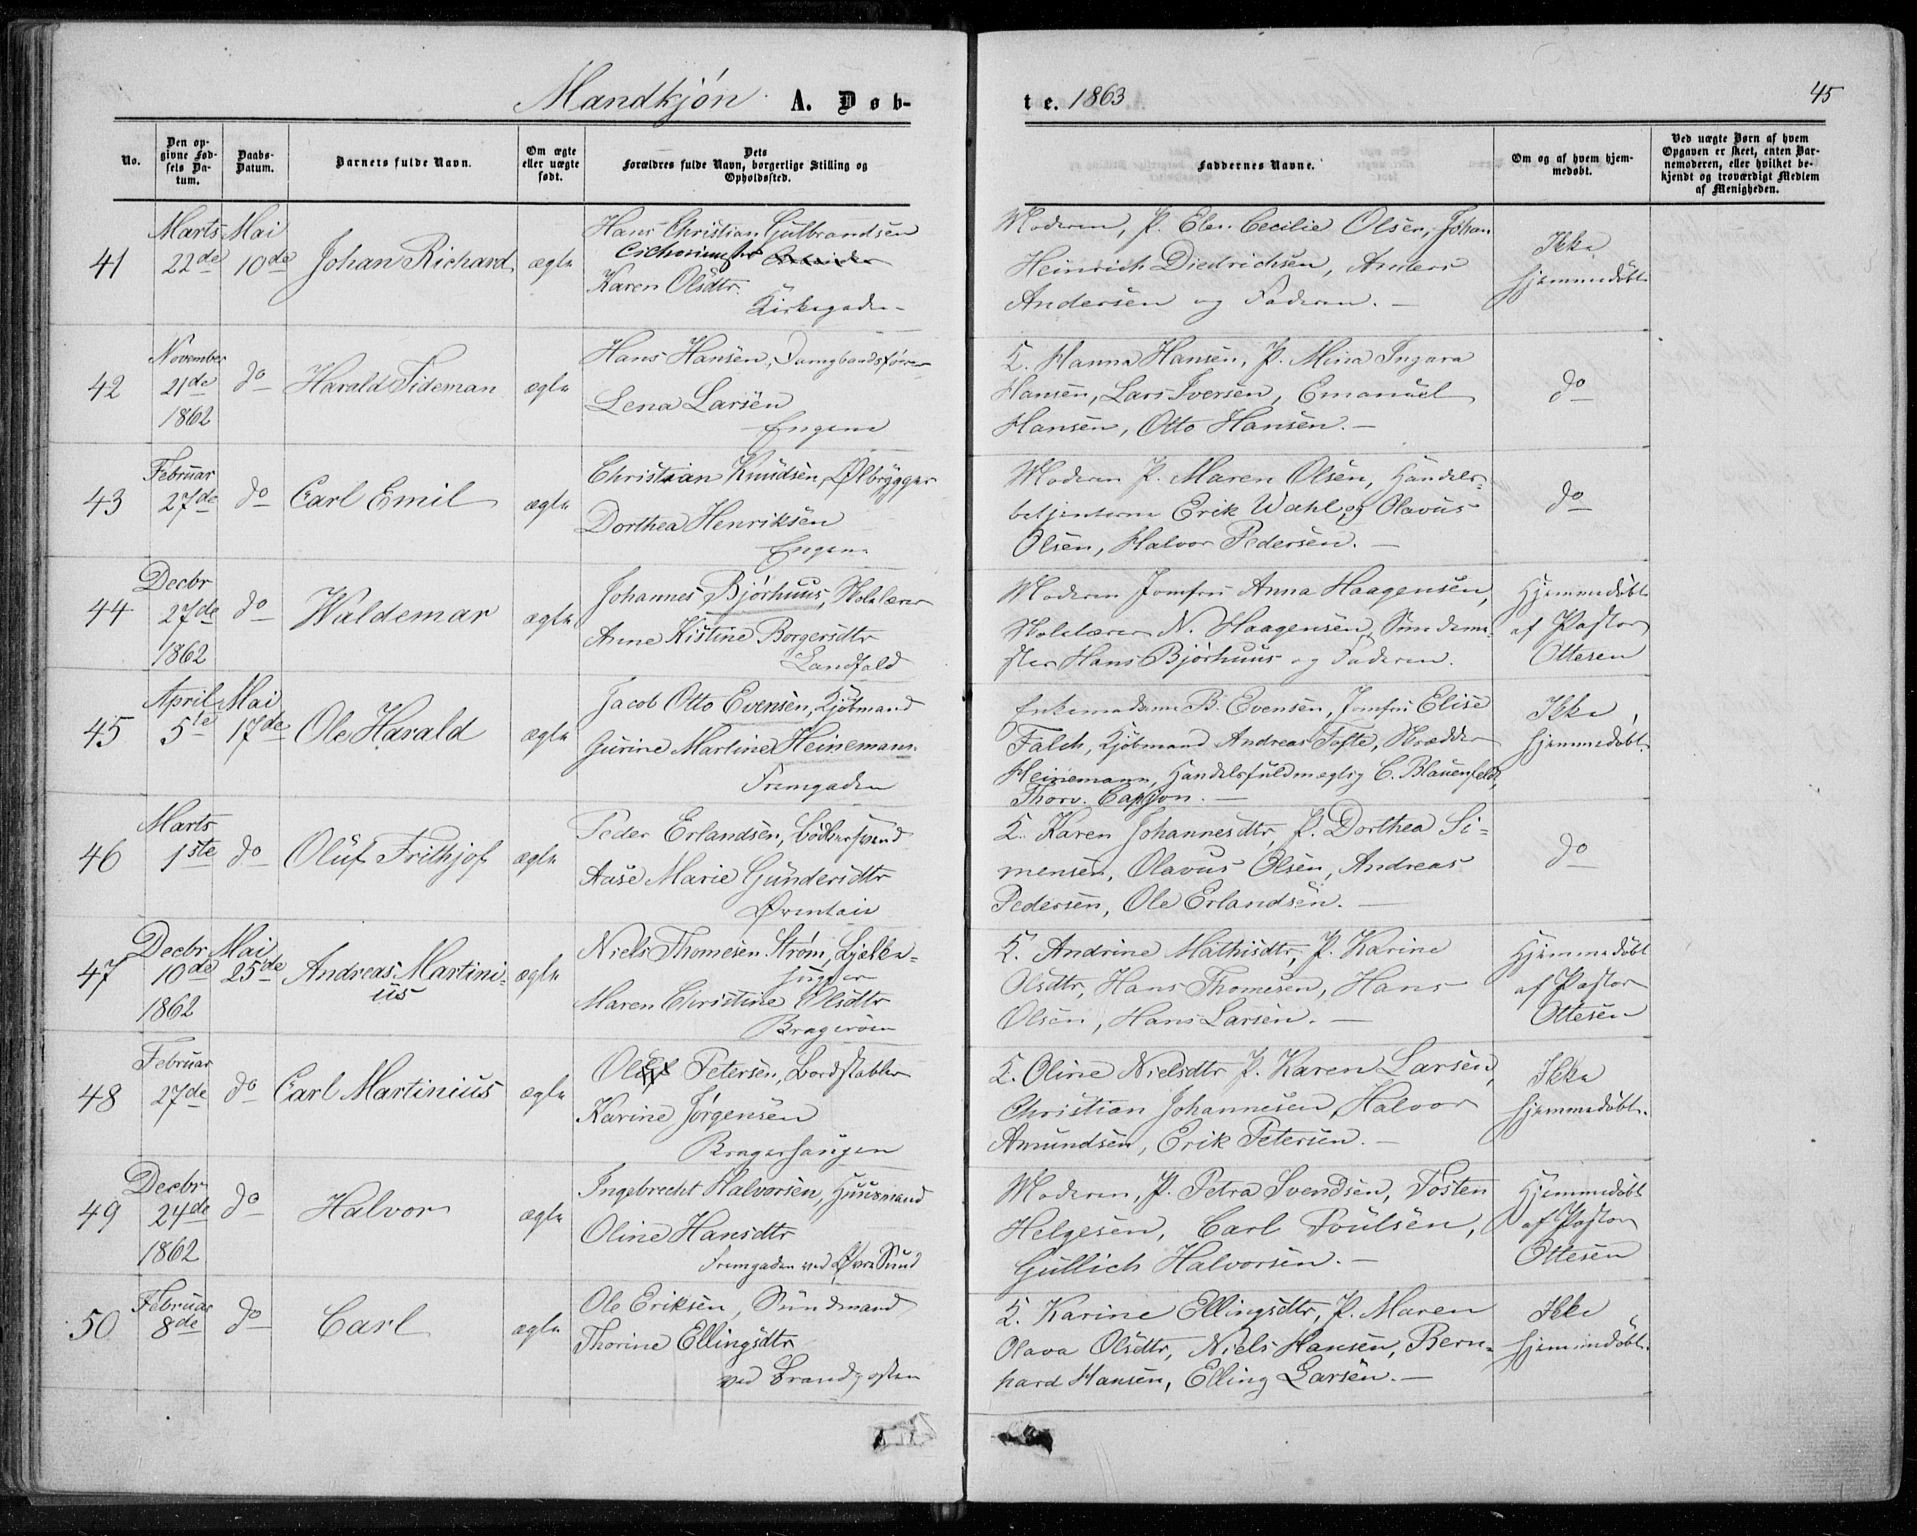 Mandkjøn. A. Døb-
te. 1863
45
No.
Den op-
givne Fød-
sels Da-
tum.
Daabs-
Datum.
Barnets fulde Navn.
Om ægte
eller uægte
født.
Dets
Forældres fulde Navn, borgerlige Stilling og
Opholdssted.
Faddernes Navne.
Om og af hvem hjem-
medøbt.
Ved uægte Børn af hvem
Opgaven er skeet, enten Bar-
nemoderen, eller hvilket be-
kjendt og troværdigt Medlem
af Menigheden.
41
Marts
22de
Mai
10de
Johan Richard
ægte
Hans Christian Gulbrandsen
Arbeider
Karen Olsdtr.
Kirkegaden
Moderen, P. Elen Cecilie Olsen, Johan
Heinrich Diedrichsen, Anders
Andersen og Faderen. —
Ikke
hjemmedøbt
42
November
21de
1862
do
Harald Tideman
ægte
Hans Hansen, Dampbaadsfører
Lena Larsen
Engene
K. Hanna Hansen, P. Mina Ingara
Hansen, Lars Iversen, Emanuel
Hansen, Otto Hansen. —
do
43
Februar
27de
do
Carl Emil
ægte
Christian Knudsen, Ølbrygger
Dorthea Henriksen
Engene
Moderen P. Maren Olsen, Handels-
betjenterne Erik Wahl, og Olavus
Olsen, Halvor Pedersen. —
do
44
Decbr
27de
1862
do
Waldemar
ægte
Johannes Bjørhuus, Skolelærer
Anne Kistine Borgersdtr
Landfald
Moderen Jomfru Anna Haagensen,
Skolelærer N. Haagensen,
Hans Bjørhuus og Faderen.
Hjemmedøbt
af Pastor
Ottesen
45
April
5te
Mai
17de
Ole Harald
ægte
Jacob Otto Evensen, Kjøbmand
Gurine Martine Heinemann
Fremgaden
Enkemadame B. Evensen, Jomfru Elise
Falch, Kjøbmand Andreas Tofte, Skrædder
Heinemann, Handelsfuldmægtig C. Blauenfeldt,
Thorv. —
Ikke
hjemmedøbt.
46
Marts
1ste
do
Oluf Frithjof
ægte
Peder Erlandsen, Bødkersvend
Aase Marie Gundersdtr
K. Karen Johannesdtr, P. Dorthea Si-
mensen, Olavus Olsen, Andreas
Pedersen, Ole Erlandsen. —
do
47
Decbr
10de
1862
Mai
25de
Andreas Martini-
us
ægte
Niels Thomesen Strøm,
Maren Christine Olsdtr
Bragerøen
K. Andrine Mathisdtr, P. Karine
Olsdtr, Hans Thomesen, Hans
Olsen, Hans Larsen. —
Hjemmedøbt
af Pastor
Ottesen
48
Februar
27de
do
Carl Martinius
ægte
Petersen, Bordstabler
Karine Jørgensen
Bragerhaugen
K. Oline Nielsdtr P. Karen Larsen,
Christian Johannesen, Halvor
Amundsen, Erik Petersen. —
Ikke
hjemmedøbt.
49
Decbr
24de
1862
do
Halvor
ægte
Ingebrecht Halvorsen, Huusmand
Oline Hansdtr
Fremgaden ved Øvre Sund
Moderen, P. Petra Svendsen, Tosten
Helgesen, Carl Poulsen,
Gullich Halvorsen. —
Hjemmedøbt
af Pastor
Ottesen
50
Februar
8de
do
Carl
ægte
Ole Eriksen, Sundmand
Thorine Ellingsdtr
ved Brandposten
K. Karine Ellingsdtr, P. Maren
Olava Olsdtr, Niels Hansen, Bern-
hard Hansen, Elling Larsen. —
Ikke
hjemmedøbt.